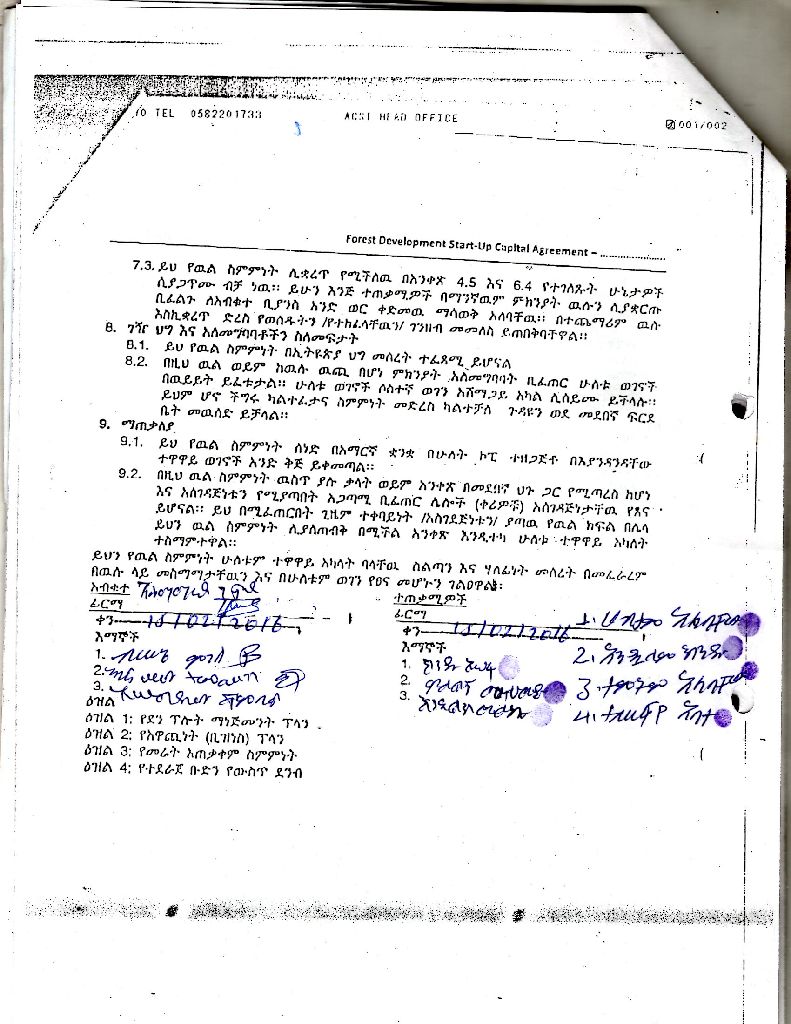 TEL 0582201733 ACSI HEAD OFFICE 001/002
Forest Development Start-Up Capital Agreement – ......................
7.3. ይህ የዉል ስምምነት ሊቋረጥ የሚችለዉ በአንቀጽ 4.5 እና 6.4 የተገለጹት ሁኔታዎች
ሲያጋጥሙ ብቻ ነዉ፡፡ ይሁን እንጅ ተጠቃሚዎች በማንኛዉም ምክንያት ዉሉን ሊያቋርጡ
ቢፈልጉ ለአብቁተ ቢያንስ አንድ ወር ቀድመዉ ማሳወቅ አለባቸዉ፡፡ በተጨማሪም ዉሉ
እስኪቋረጥ ድረስ የወሰዱትን /የተከፈላቸዉን/ ገንዘብ መመለስ ይጠበቅባቸዋል፡፡
8. ገዥ ህግ እና አለመግባባቶችን ስለመፍታት
8.1. ይህ የዉል ስምምነት በኢትዮጵያ ህግ መሰረት ተፈጻሚ ይሆናል
8.2. በዚህ ዉል ወይም ከዉሉ ዉጪ በሆነ ምክንያት አለመግባባት ቢፈጠር ሁለቱ ወገኖች
በዉይይት ይፈቱታል፡፡ ሁለቱ ወገኖች ሶስተኛ ወገን አሸማጋይ አካል ሊሰይሙ ይችላሉ፡፡
ይህም ሆኖ ችግሩ ካልተፈታና ስምምነት መድረስ ካልተቻለ ጉዳዩን ወደ መደበኛ ፍርድ
ቤት መዉሰድ ይቻላል፡፡
9. ማጠቃለያ
9.1. ይህ የዉል ስምምነት ሰነድ በአማርኛ ቋንቋ በሁለት ኮፒ ተዘጋጅቶ በእያንዳንዳቸው
ተዋዋይ ወገኖች አንድ ቅጅ ይቀመጣል፡፡
9.2. በዚህ ዉል ስምምነት ዉስጥ ያሉ ቃላት ወይም አንቀጽ በመደበኛ ህጉ ጋር የሚጣረስ ከሆነ
እና አስገዳጅነቱን የሚያጣበት አጋጣሚ ቢፈጠር ሌሎች (ቀሪዎች) አስገዳጅነታቸዉ የጸና
ይሆናል፡፡ ይህ በሚፈጠርበት ጊዜም ተቀባይነት /አስገደጅነቱን/ ያጣዉ የዉል ክፍል በሌላ
ይህን ዉል ስምምነት ሊያለጠብቅ በሚችል አንቀጽ እንዲተካ ሁለቱ ተዋዋይ አካለት
ተስማምተዋል፡፡
ይህን የዉል ስምምነት ሁለቱም ተዋዋይ አካላት ባላቸዉ ስልጣን እና ሃላፊነት መሰረት በመፈራረም
በዉሉ ላይ መስማማታቸዉን እና በሁለቱም ወገን የፀና መሆኑን ገልፀዋል፡
አብቁተ
ፊርማ
ቀን 15/02/2016
እማኞች
1.
2.
3.
ተጠቃሚዎች
ፊርማ
ቀን 15/02/2016
እማኞች
1.
2.
3.
1.
2.
3.
4.
ዕዝል
ዕዝል 1: የደን ፕሎት ማነጅመንት ፕላን
ዕዝል 2: የአዋጪነት (ቢዝነስ) ፕላን
ዕዝል 3: የመሬት አጠቃቀም ስምምነት
ዕዝል 4: የተደራጀ ቡድን የውስጥ ደንብ